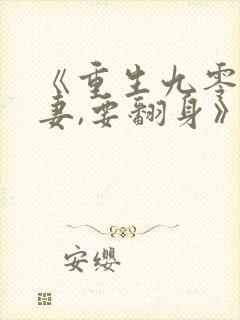 《重生九零
妻,要翻身》
安缨